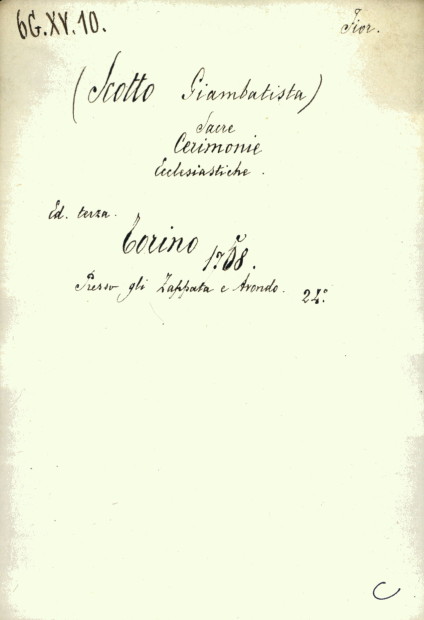 6G.XV.10.
Fior.
(Scotto Giambatista)
Sacre
Cerimonie
Ecclesiastiche.
Ed. terza.
Torino
Presso gli Zappata e Avondo. 24.°
C